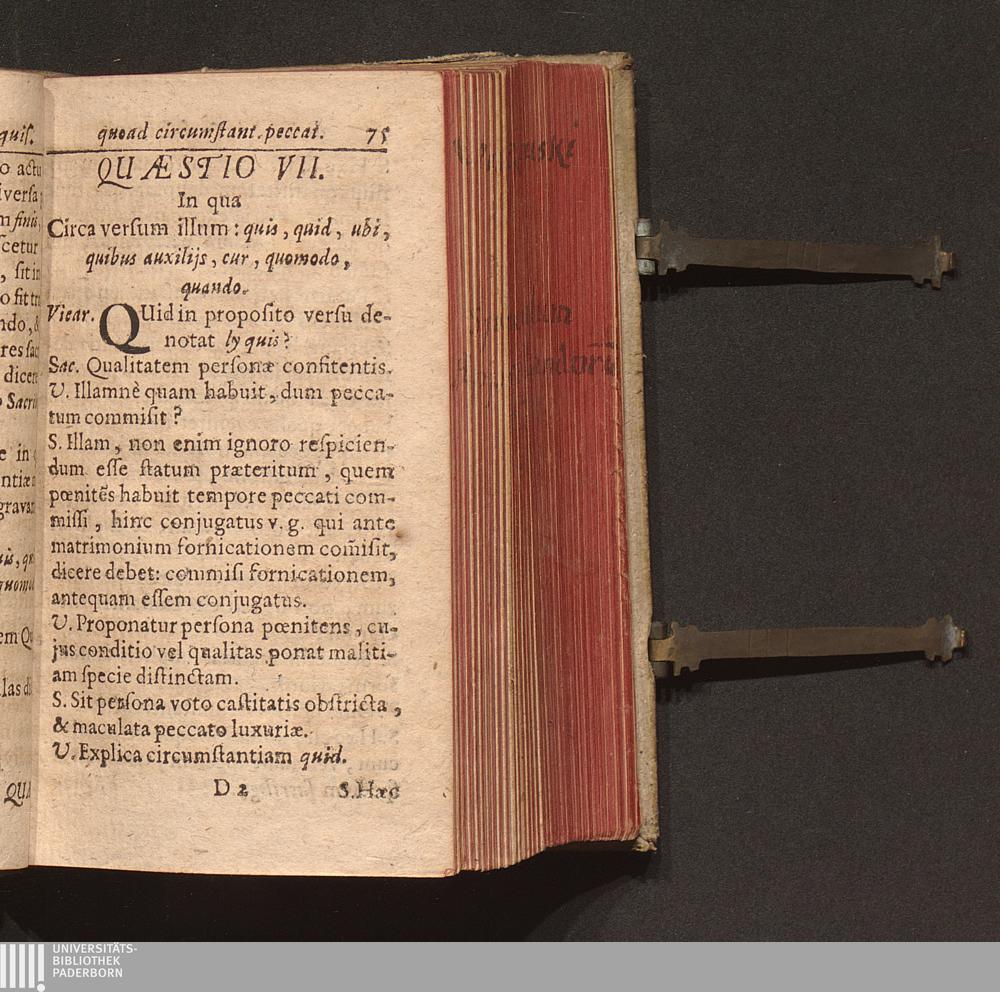 quoad circumſtant. peccat. 75
QUÆSTIO VII.
In qua
Circa verſum illum: quis, quid, ubi,
quibus auxilijs, cur, quomodo,
quando.
Vicar. QUid in propoſito verſu de-
notat ly quis?
Sac. Qualitatem perſonæ confitentis.
V. Illamnè quam habuit, dum pecca-
tum commiſit?
S. Illam, non enim ignoro reſpicien-
dum eſſe ſtatum præteritum, quem
pœnitẽs habuit tempore peccati com-
miſſi, hinc conjugatus v. g. qui ante
matrimonium fornicationem com̃iſit,
dicere debet: commiſi fornicationem,
antequam eſſem conjugatus.
V. Proponatur perſona pœnitens, cu-
jus conditio vel qualitas ponat maliti-
am ſpecie diſtinctam.
S. Sit perſona voto caſtitatis obſtricta,
& maculata peccato luxuriæ.
V. Explica circumſtantiam quid.
D 2 S. Hæc
UNIVERSITÄTS-
BIBLIOTHEK
PADERBORN